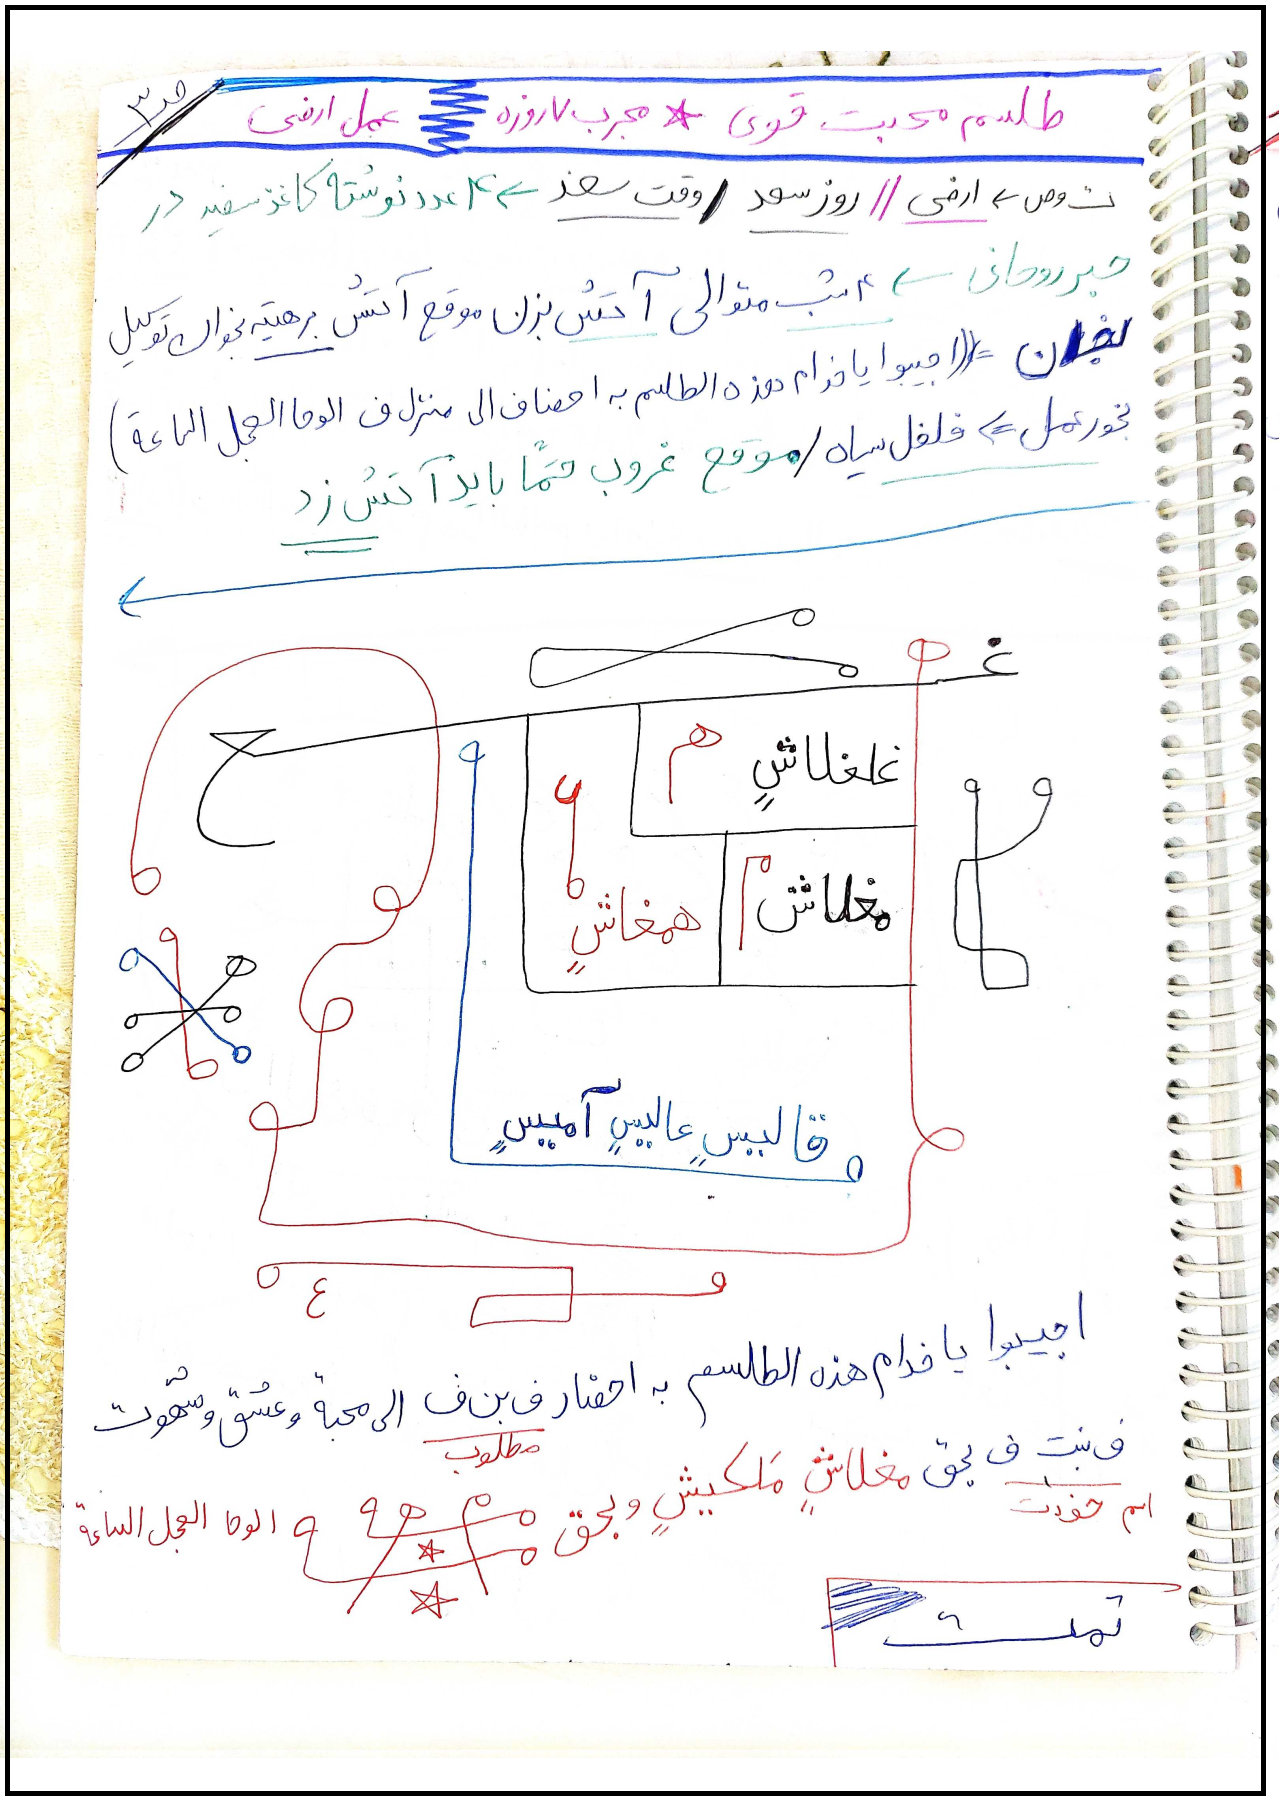 ص۳
طلسم محبت قوی ☆ مجرب ۷ روزه عمل ارضی
ت وص ← ارضی // روز سعد / وقت سعد ← ۴ عدد نوشته کاغذ سفید در
حبر روحانی ← ۴ شب متوالی آتش بزن موقع آتش برهتیه بخوان توکیل
بخوان ⇐ ((اجیبوا یا خدام هذه الطلسم به احضا ف الی منزل ف الوحا العجل الساعة)
بخور عمل ⇐ فلفل سیاه / موقع غروب حتمًا باید آتش زد
غ
ح
غلغلاشٍ
م
مغلاش
م
همغاشٍ
قالیسٍ عالیسٍ آمیسٍ
ع
اجیبوا یا خدام هذه الطلسم به احضار ف بن ف الی محبة و عشق و شهوت
مطلوب
ف بنت ف بحق مغلاشٍ مَلکیشٍ و بحق
اسم خودت
الوحا العجل الساعة
تمت